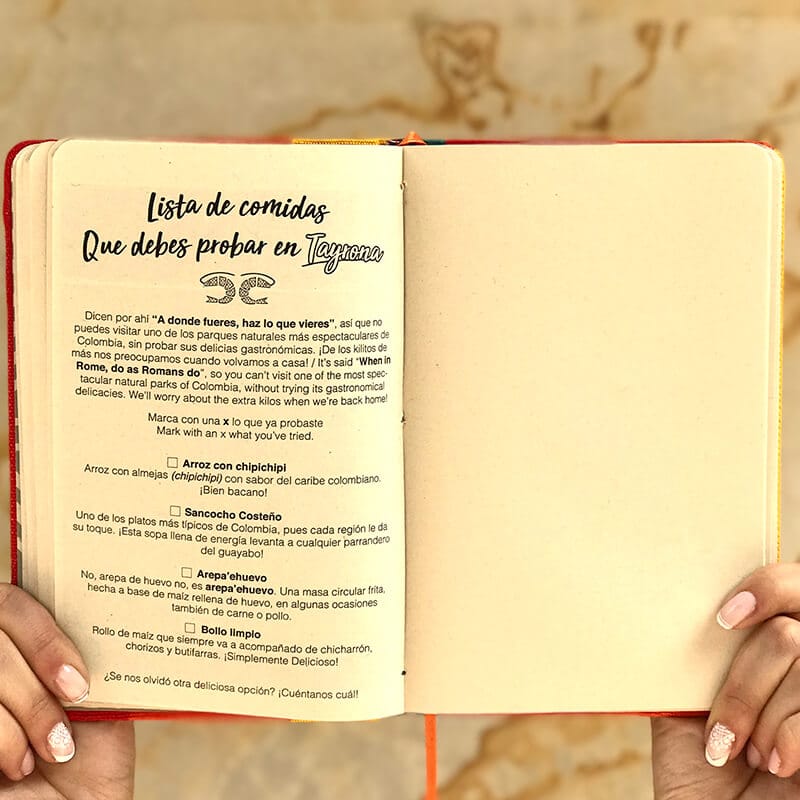 Lista de comidas
Que debes probar en Tayrona
Dicen por ahí "A donde fueres, haz lo que vieres", así que no
puedes visitar uno de los parques naturales más espectaculares de
Colombia, sin probar sus delicias gastronómicas. ¡De los kilitos de
más nos preocupamos cuando volvamos a casa! / It's said "When in
Rome, do as Romans do", so you can't visit one of the most spec-
tacular natural parks of Colombia, without trying its gastronomical
delicacies. We'll worry about the extra kilos when we're back home!
Marca con una x lo que ya probaste
Mark with an x what you've tried.
Arroz con chipichipi
Arroz con almejas (chipichipi) con sabor del caribe colombiano.
¡Bien bacano!
Sancocho Costeño
Uno de los platos más típicos de Colombia, pues cada región le da
su toque. ¡Esta sopa llena de energía levanta a cualquier parrandero
del guayabo!
Arepa'ehuevo
No, arepa de huevo no, es arepa'ehuevo. Una masa circular frita,
hecha a base de maíz rellena de huevo, en algunas ocasiones
también de carne o pollo.
Bollo limpio
Rollo de maíz que siempre va a acompañado de chicharrón,
chorizos y butifarras. ¡Simplemente Delicioso!
¿Se nos olvidó otra deliciosa opción? ¡Cuéntanos cuál!